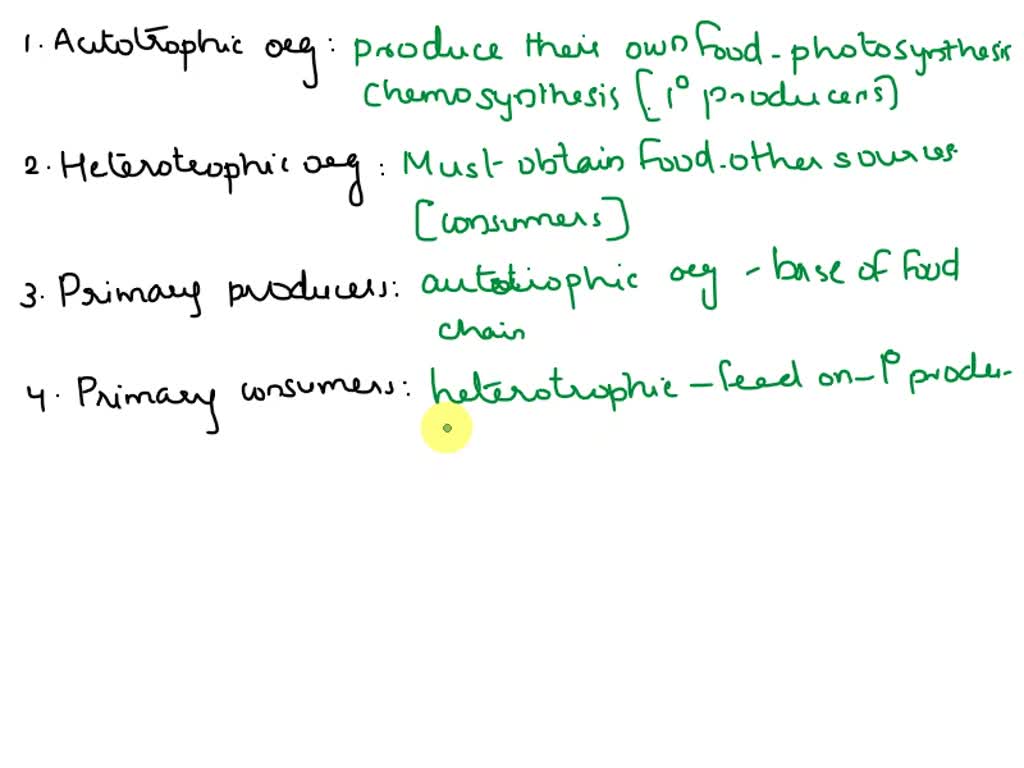 1. Autotrophic org: produce their own food - photosynthesis
chemosynthesis [1° producers]
2. Heterotrophic org: Must obtain food - other sources
[consumers]
3. Primary producers: autotrophic org - base of food
chain
4. Primary consumers: heterotrophic - feed on - 1° produ-